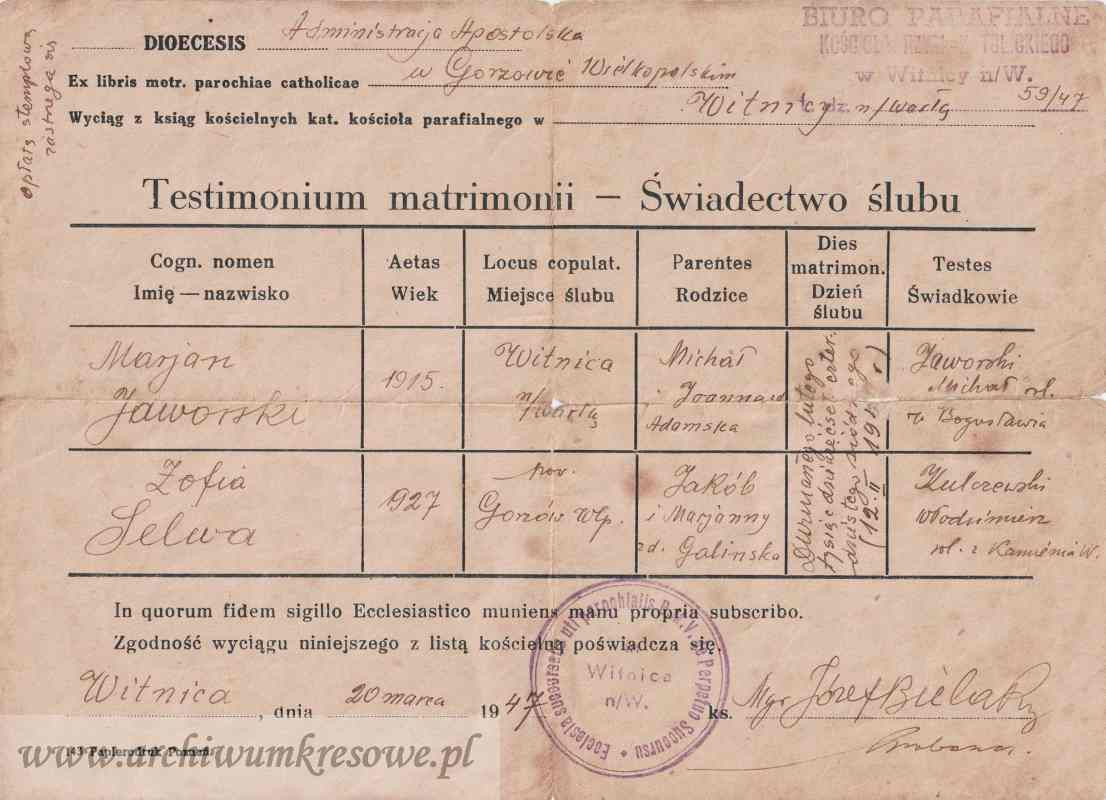 opłatę stemplową
zastrzega się
DIOECESIS Administracja Apostolska
w Gorzowie Wielkopolskim
Ex libris metr. parochiae catholicae
Wyciąg z ksiąg kościelnych kat. kościoła parafialnego w Witnicy n/Wartą
BIURO PARAFIALNE
w Witnicy n/W.
L. dz. 59/47
Testimonium matrimonii — Świadectwo ślubu
Cogn. nomen
Imię — nazwisko
Aetas
Wiek
Locus copulat.
Miejsce ślubu
Parentes
Rodzice
Dies
matrimon.
Dzień
ślubu
Testes
Świadkowie
Marjan
Jaworski
1915.
Witnica
n/Wartą
Michał
i Joanna
Adamska
Jaworski
Michał rol.
z Bogusławia
Zofia
Selwa
1927
pow.
Gorzów Wlp.
Jakób
i Marjanny
zd. Galińska
Dwunastego lutego
tysiąc dziewięćset czter.
dziestego siódmego
Kulczewski
Włodzimierz
rol. z Kamienia W.
In quorum fidem sigillo Ecclesiastico muniens manu propria subscribo.
Zgodność wyciągu niniejszego z listą kościelną poświadcza się.
Witnica, dnia 20 marca 1947
Witnica
n/W.
ks. Mgr Józef
143 Papierodruk Poznań
www.archiwumkresowe.pl